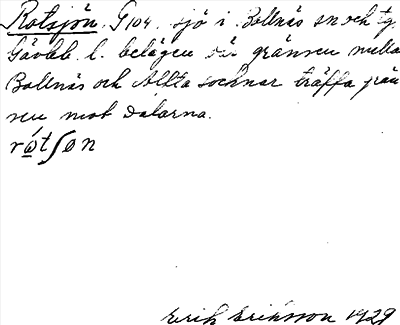 Rotsjön. G104. sjö i Bollnäs sn och tg,
Gävleb. l. belägen där gränsen mella
Bollnäs och Alfta socknar träffa grän
sen mot Dalarna.
rωtʃøn
Erik Eriksson 1929